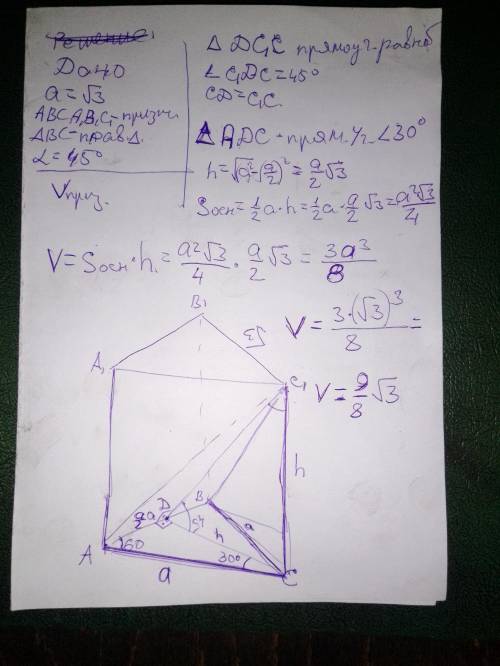 Решение.
Дано
a = √3
ABCA₁B₁C₁ - призм.
ΔABC = прав Δ.
α = 45°
Vприз.
Δ DC₁C прямоуг. равноб
∠ C₁DC = 45°
CD = C₁C.
Δ ADC - прям. уг. ∠30°
h = √(a² - (a/2)²) = a/2 √3
Sосн = 1/2 a · h = 1/2 a · a/2 √3 = a²√3/4
V = Sосн · h = a²√3/4 · a/2 √3 = 3a³/8
V = 3·(√3)³/8 =
V = 9/8 √3
B₁
√3
A₁
C₁
h
D
B
a
45
h
A
60
30°
C
a